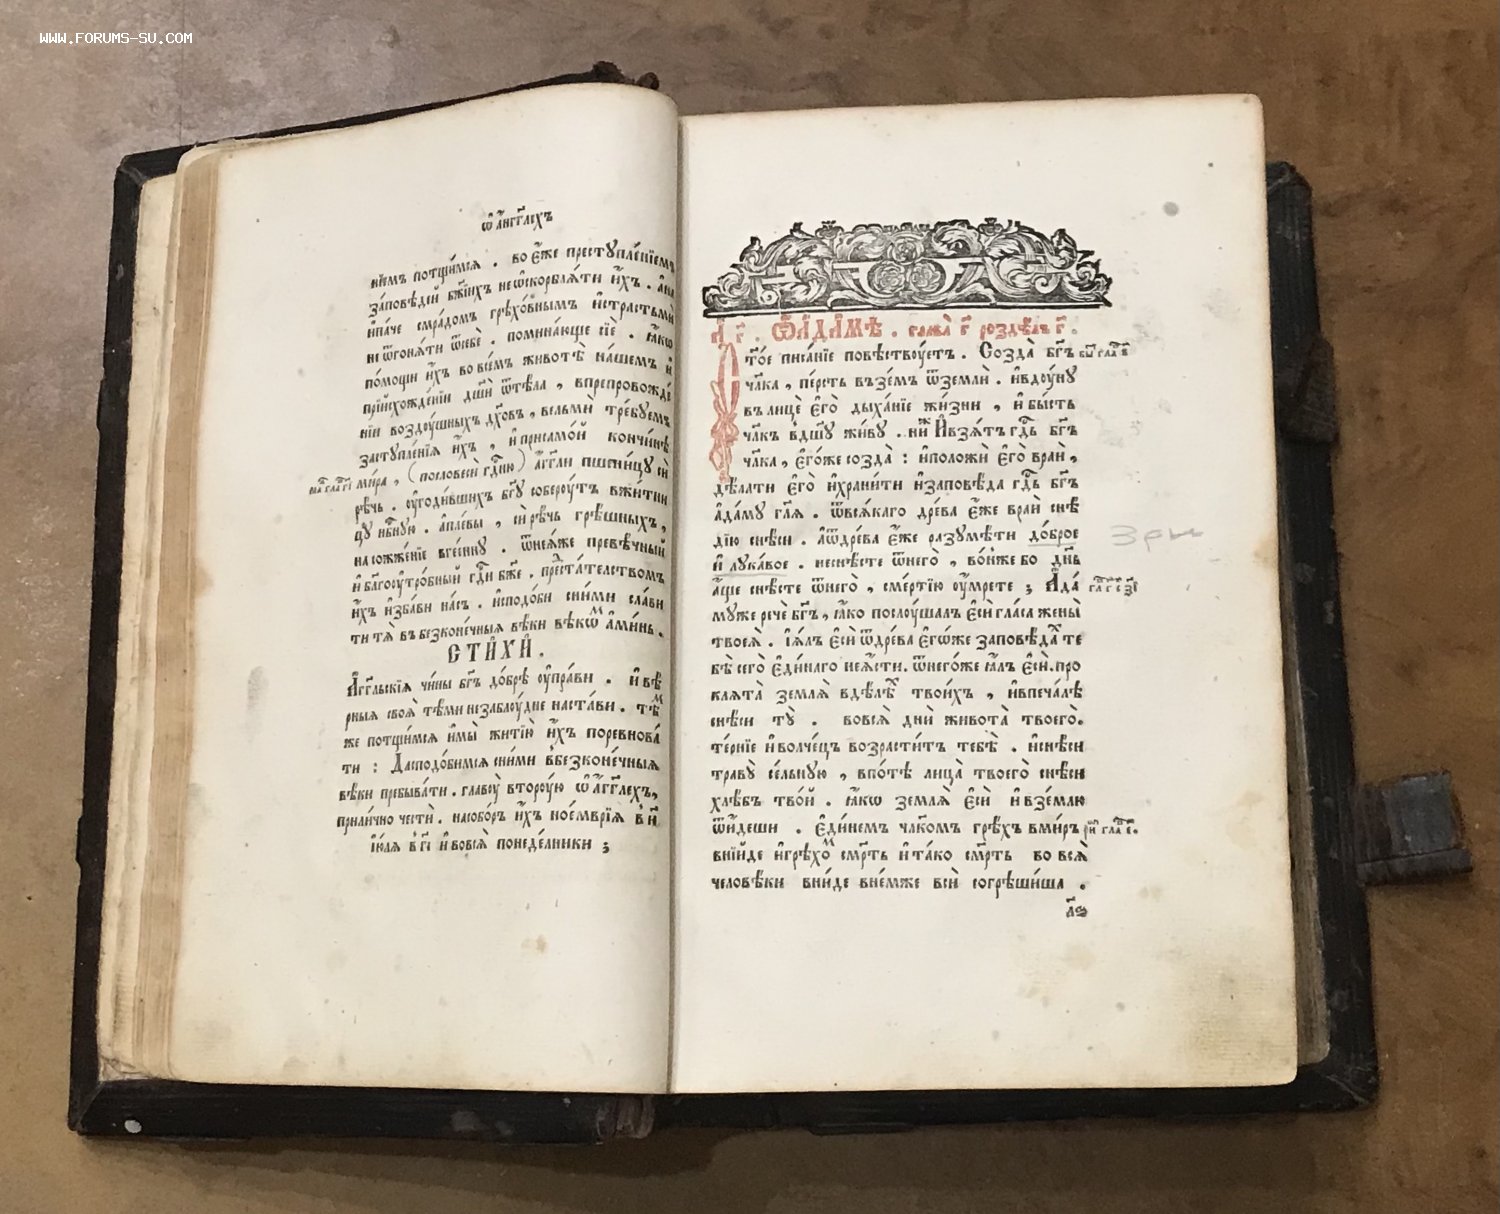 WWW.FORUMS-SU.COM
ѽ а҆́гг҃лехъ
ни́мъ потщи́мся . во є҆́же престꙋпле́нїемъ
за́повѣдей бж҃їихъ не ѡ҆скорблѧ́ти и҆́хъ . а҆на
и҆па́че смра́домъ грѣхо́внымъ и҆страстьми
не ѿгонѧ́ти ѿсебѐ . помина́юще сїѐ . ꙗ҆́кѡ
по́мощи и҆́хъ во все́мъ животѣ̀ на́шемъ и҆
при̑исхожде́нїи дш҃ѝ ѿтѣ́ла , впрепровожде́
нїи воздꙋ́шныхъ дх҃о́въ , вельмѝ тре́бꙋемъ
застꙋпле́нїѧ и҆́хъ , и҆присамо́й кончи́нѣ
ми́ра , (посло́весѝ гдⷭ҇ню) а҆́гг҃ли пшени́цꙋ сѝ
рѣ́чь . оу҆годи́вшихъ бг҃ꙋ соберꙋ́тъ вжи́тни
цꙋ нб҃нꙋю . а҆пле́вы , сѝ рѣ́чь грѣ́шныхъ ,
на сожже́нїе вгее́ннꙋ . ѿнеѧ́же превѣ́чный
и҆ благоꙋтро́бный гдⷭ҇и бж҃е . предста́телствомъ
и҆́хъ и҆зба́ви на́съ . и҆сподо́би сни́ми сла́ви
ти тѧ̀ въ безконе́чныѧ вѣ́ки вѣкѡ́мъ а҆ми́нь .
СТИХЍ .
А҆́гг҃льскїѧ чи́ны бг҃ъ до́брѣ оу҆пра́ви . и҆ вѣ́
рныѧ своѧ̀ тѣ́ми незаблꙋ́дне наста́ви . тѣ́м
же потщи́мся и҆мы̀ житїю̀ и҆́хъ поревнова́
ти : Дасподо́бимся сни́ми вбезконе́чныѧ
вѣ́ки пребыва́ти . главꙋ̀ вторꙋ́ю ѽ а҆́гг҃лехъ ,
прили́чно че́сти . насобо́ръ и҆́хъ ное́мврїѧ в и҃
і҆ꙋ́лѧ в гі҃ и҆ вовсѧ̀ понедѣ́лники ;
Л҃ г҃ . Ѽ А҆ДА́МѢ . глава̀ г҃ роздѣ́лъ г҃ .
то́е писа́нїе повѣ́ствꙋетъ . Созда̀ бг҃ъ
чл҃ка , пе́рсть възе́мъ ѿземлѝ . и҆вдꙋ́нꙋ
въ лицѐ є҆гѡ̀ дыха́нїе жи́зни , и҆ бы́сть
чл҃къ вдш҃ꙋ жи́вꙋ . И҆взѧ́тъ гдⷭ҇ь бг҃ъ
чл҃ка , є҆го́же созда̀ : и҆положѝ є҆гѡ̀ вра́и ,
дѣ́лати є҆гѡ̀ и҆храни́ти и҆заповѣ́да гдⷭ҇ь бг҃ъ
а҆да́мꙋ гл҃ѧ . ѿвсѧ́каго дре́ва є҆́же вра́и снѣ
дїю снѣ́си . а҆ѿдре́ва є҆́же разꙋмѣ́ти до́брое
и҆ лꙋка́вое . неснѣ́сте ѿнегѡ̀ , во́ньже бо дн҃ь
а҆́ще снѣ́сте ѿнегѡ̀ , сме́ртїю оу҆́мрете ; А҆да́
мꙋже речѐ бг҃ъ , ꙗ҆́ко послꙋ́шалъ є҆сѝ гла́са жены̀
твоеѧ̀ . і҆ꙗ́лъ є҆сѝ ѿдре́ва є҆гѡ́же заповѣ́дахъ те
бѣ̀ сегѡ̀ є҆ди́наго неꙗ҆́сти . ѿнего́же ꙗ҆́лъ є҆сѝ . про
клѧта̀ землѧ̀ вдѣ́лѣхъ твои́хъ , и҆впеча́лѣ
снѣ́си тꙋ̀ . вовсѧ̀ днѝ живота̀ твоегѡ̀ .
те́рнїе и҆ во́лчецъ возрасти́тъ тебѣ̀ . и҆снѣ́си
травꙋ̀ се́льнꙋю , впо́тѣ лица̀ твоегѡ̀ снѣ́си
хлѣ́бъ тво́й . ꙗ҆́кѡ землѧ̀ є҆сѝ и҆ взе́млю
ѿи́деши . є҆ди́немъ чл҃комъ грѣ́хъ вми́ръ
вни́йде и҆грѣхо́мъ сме́рть и҆ та́ко сме́рть во всѧ̀
человѣ́ки вни́де вне́мже всѝ согрѣши́ша .
зри